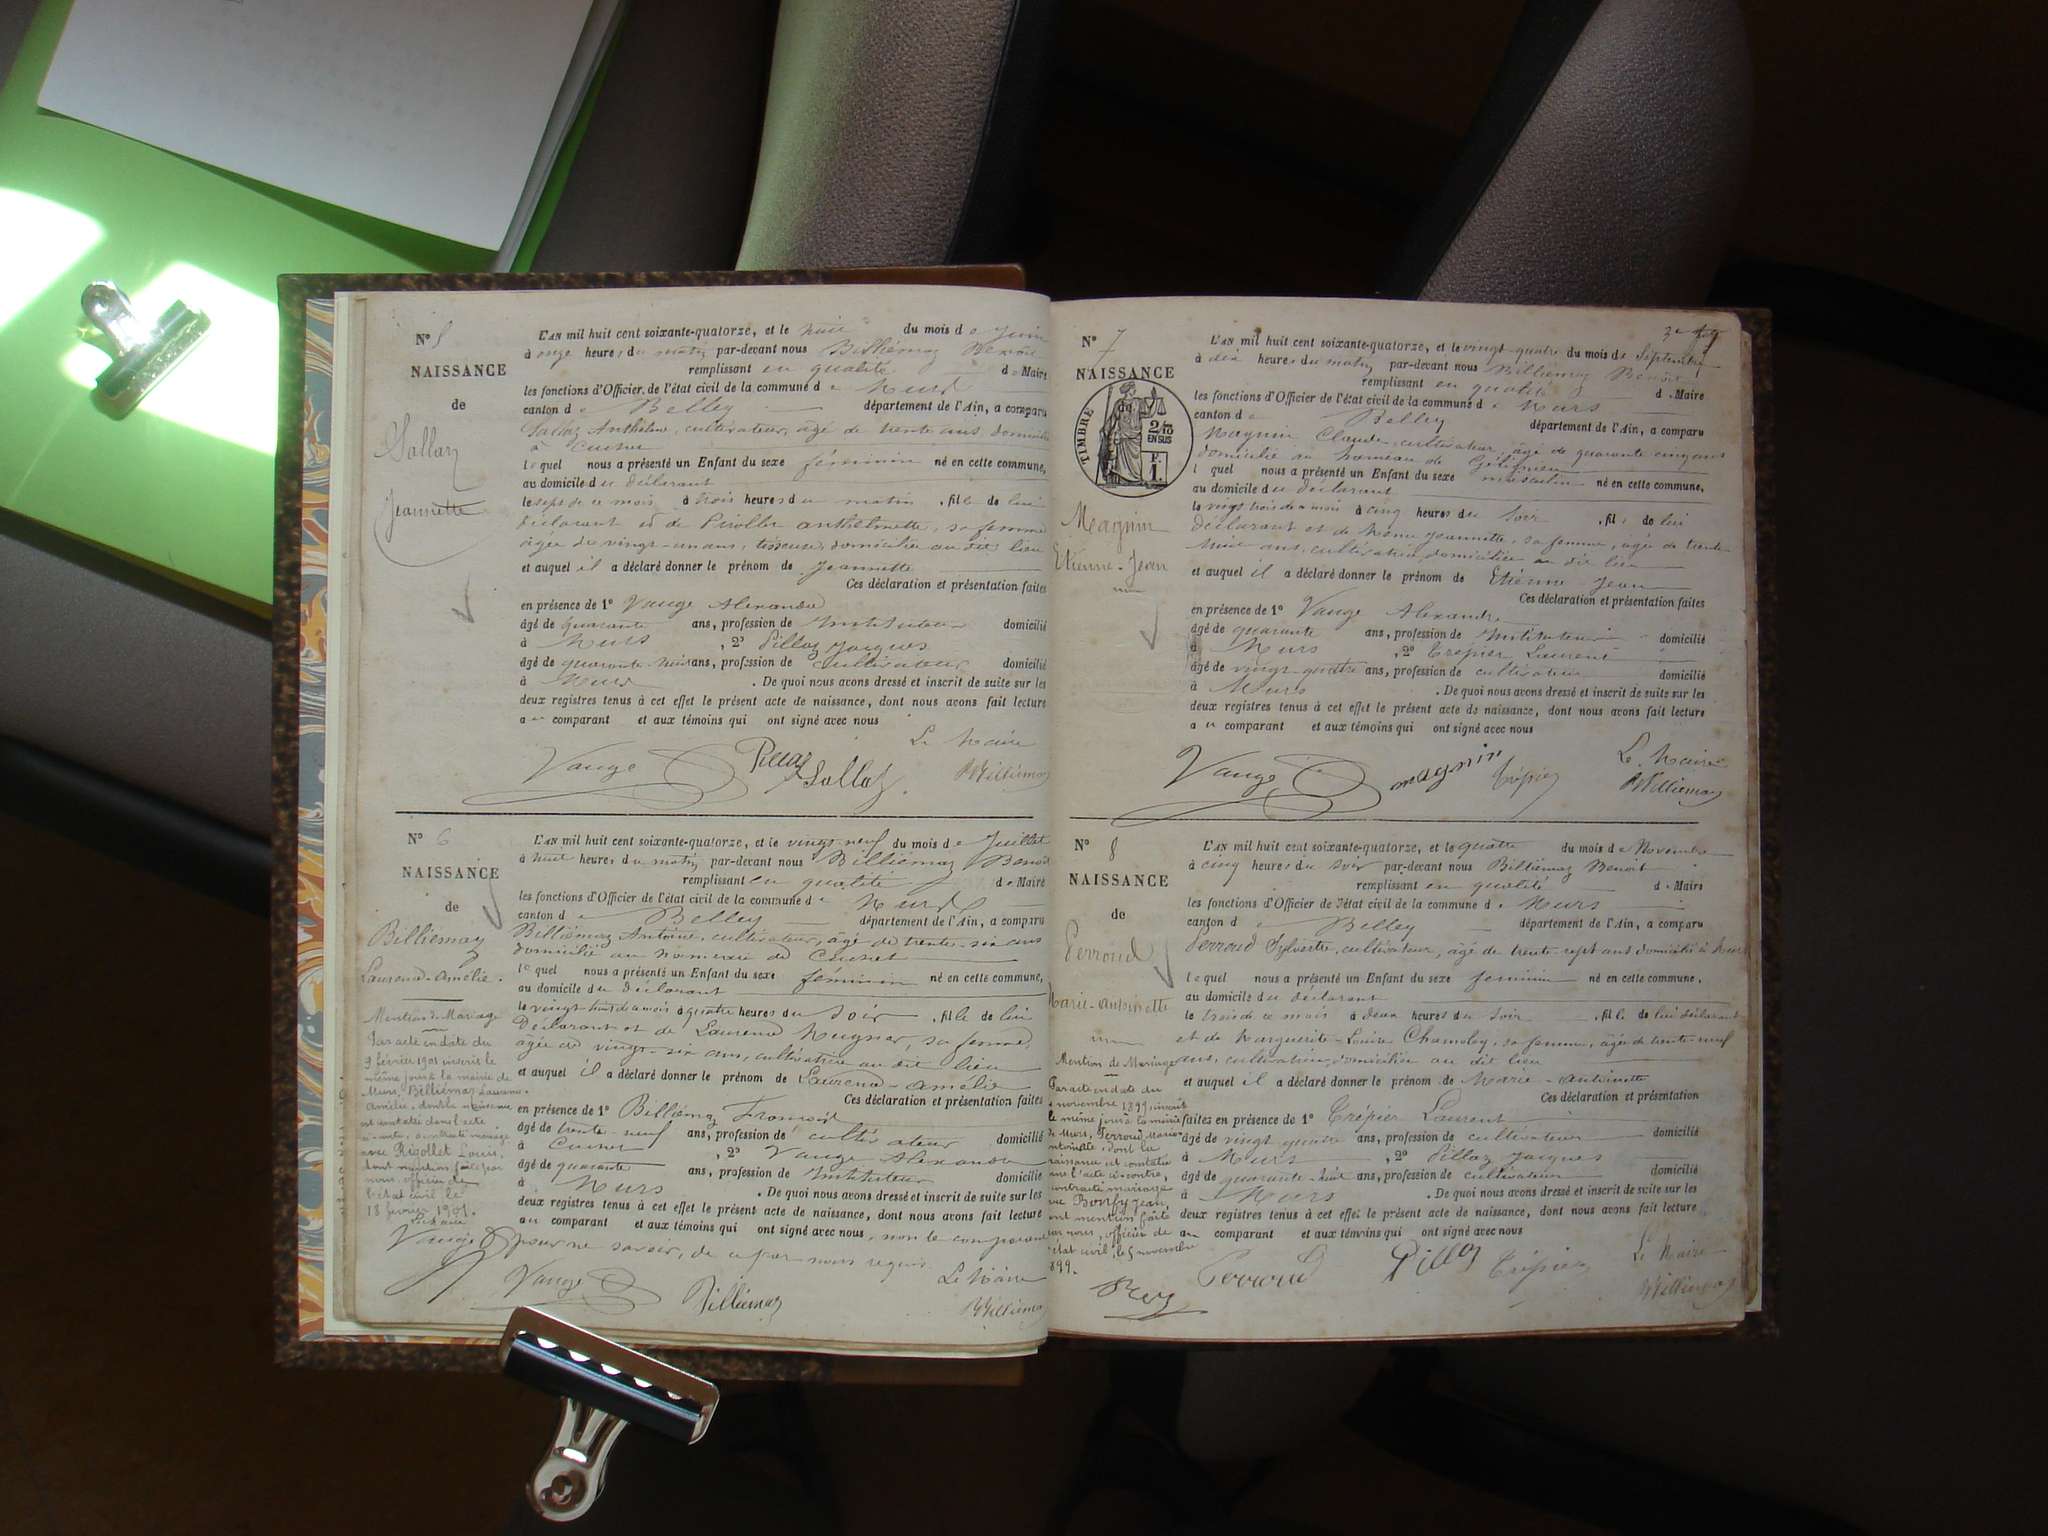 N° 5
NAISSANCE
de
Sallaz
Jeannette
L'AN mil huit cent soixante-quatorze, et le huit du mois de Juin
à onze heures du matin par-devant nous Billiémaz Benoit
remplissant en qualité de Maire
les fonctions d'Officier de l'état civil de la commune de Murs
canton de Belley département de l'Ain, a comparu
Sallaz Anthelme, cultivateur, âgé de trente ans, domicilié
à Cuchet
lequel nous a présenté un Enfant du sexe féminin né en cette commune,
au domicile du déclarant
le sept de ce mois à trois heures du matin, fille de lui
déclarant et de Anthelmette, sa femme
âgée de vingt-un ans, tisseuse, domiciliée au dit lieu
et auquel il a déclaré donner le prénom de Jeannette
Ces déclaration et présentation faites
en présence de 1° Vauge Alexandre
âgé de quarante ans, profession de Instituteur domicilié
à Murs, 2° Pillaz Jacques
âgé de quarante-huit ans, profession de cultivateur domicilié
à Murs. De quoi nous avons dressé et inscrit de suite sur les
deux registres tenus à cet effet le présent acte de naissance, dont nous avons fait lecture
au comparant et aux témoins qui ont signé avec nous
Le Maire
Vauge Pillaz Sallaz Billiémaz
N° 6
NAISSANCE
de
Billiemaz
Laurence-Amélie.
Mention de Mariage
Par acte en date du
9 février 1901 inscrit le
même jour à la mairie de
Murs, Billiémaz Laurence
Amélie, dont la naissance
est constatée dans l'acte
ci-contre, a contracté mariage
avec Rigollet Louis,
dont mention faite par
nous, officier de
l'état civil le
18 février 1901.
L'AN mil huit cent soixante-quatorze, et le vingt-neuf du mois de Juillet
à huit heures du matin par-devant nous Billiémaz Benoit
remplissant en qualité de Maire
les fonctions d'Officier de l'état civil de la commune de Murs
canton de Belley département de l'Ain, a comparu
Billiémaz Antoine, cultivateur, âgé de trente-six ans
domicilié au hameau de Cuchet
lequel nous a présenté un Enfant du sexe féminin né en cette commune,
au domicile du déclarant
le vingt-huit de ce mois à quatre heures du soir, fille de lui
Déclarant et de Laurence Meynier, sa femme,
âgée de vingt-six ans, cultivatrice au dit lieu
et auquel il a déclaré donner le prénom de Laurence-Amélie
Ces déclaration et présentation faites
en présence de 1° Billiémaz François
âgé de trente-neuf ans, profession de cultivateur domicilié
à Cuchet, 2° Vauge Alexandre
âgé de quarante ans, profession de Instituteur domicilié
à Murs. De quoi nous avons dressé et inscrit de suite sur les
deux registres tenus à cet effet le présent acte de naissance, dont nous avons fait lecture
au comparant et aux témoins qui ont signé avec nous, non le comparant
pour ne savoir, de ce par nous requis.
Le Maire
Vauge Billiémaz Billiémaz
3e
N° 7
NAISSANCE
de
TIMBRE
2/10
EN SUS
F.
1.
Magnin
Etienne-Jean
L'AN mil huit cent soixante-quatorze, et le vingt-quatre du mois de Septembre
à dix heures du matin par-devant nous Billiémaz Benoit
remplissant en qualité de Maire
les fonctions d'Officier de l'état civil de la commune de Murs
canton de Belley département de l'Ain, a comparu
Magnin Claude, cultivateur, âgé de quarante cinq ans
domicilié au hameau de
lequel nous a présenté un Enfant du sexe masculin né en cette commune,
au domicile du déclarant
le vingt trois de ce mois à cinq heures du soir, fils de lui
déclarant et de Jeannette, sa femme, âgée de trente
huit ans, cultivatrice, domiciliée au dit lieu
et auquel il a déclaré donner le prénom de Etienne Jean
Ces déclaration et présentation faites
en présence de 1° Vauge Alexandre
âgé de quarante ans, profession de Instituteur domicilié
à Murs, 2° Trépier Laurent
âgé de vingt-quatre ans, profession de cultivateur domicilié
à Murs. De quoi nous avons dressé et inscrit de suite sur les
deux registres tenus à cet effet le présent acte de naissance, dont nous avons fait lecture
au comparant et aux témoins qui ont signé avec nous
Le Maire
Vauge magnin Trépier Billiemaz
N° 8
NAISSANCE
de
Perroud
Marie-Antoinette
Mention de Mariage
Par acte en date du
novembre 1899, inscrit
le même jour à la mairie
de Murs, Perroud Marie
Antoinette, dont la
naissance est constatée
par l'acte ci-contre,
contracté mariage
avec Bonfy Jean,
dont mention faite
par nous, officier de
l'état civil, le 5 novembre
1899.
L'AN mil huit cent soixante-quatorze, et le quatre du mois de Novembre
à cinq heures du soir par-devant nous Billiémaz Benoit
remplissant en qualité de Maire
les fonctions d'Officier de l'état civil de la commune de Murs
canton de Belley département de l'Ain, a comparu
Perroud Sylvestre, cultivateur, âgé de trente-sept ans domicilié à Murs
lequel nous a présenté un Enfant du sexe feminin né en cette commune,
au domicile du déclarant
le trois de ce mois à deux heures du soir, fille de lui déclarant
et de Marguerite-Louise Chamboley, sa femme, âgée de trente-neuf
ans, cultivatrice, domiciliée au dit lieu
et auquel il a déclaré donner le prénom de Marie-Antoinette
Ces déclaration et présentation
faites en présence de 1° Trépier Laurent
âgé de vingt quatre ans, profession de cultivateur domicilié
à Murs, 2° Pillaz Jacques
âgé de quarante-huit ans, profession de cultivateur domicilié
à Murs. De quoi nous avons dressé et inscrit de suite sur les
deux registres tenus à cet effet le présent acte de naissance, dont nous avons fait lecture
au comparant et aux témoins qui ont signé avec nous
Le Maire
Perroud Pillaz Trépier Billiémaz